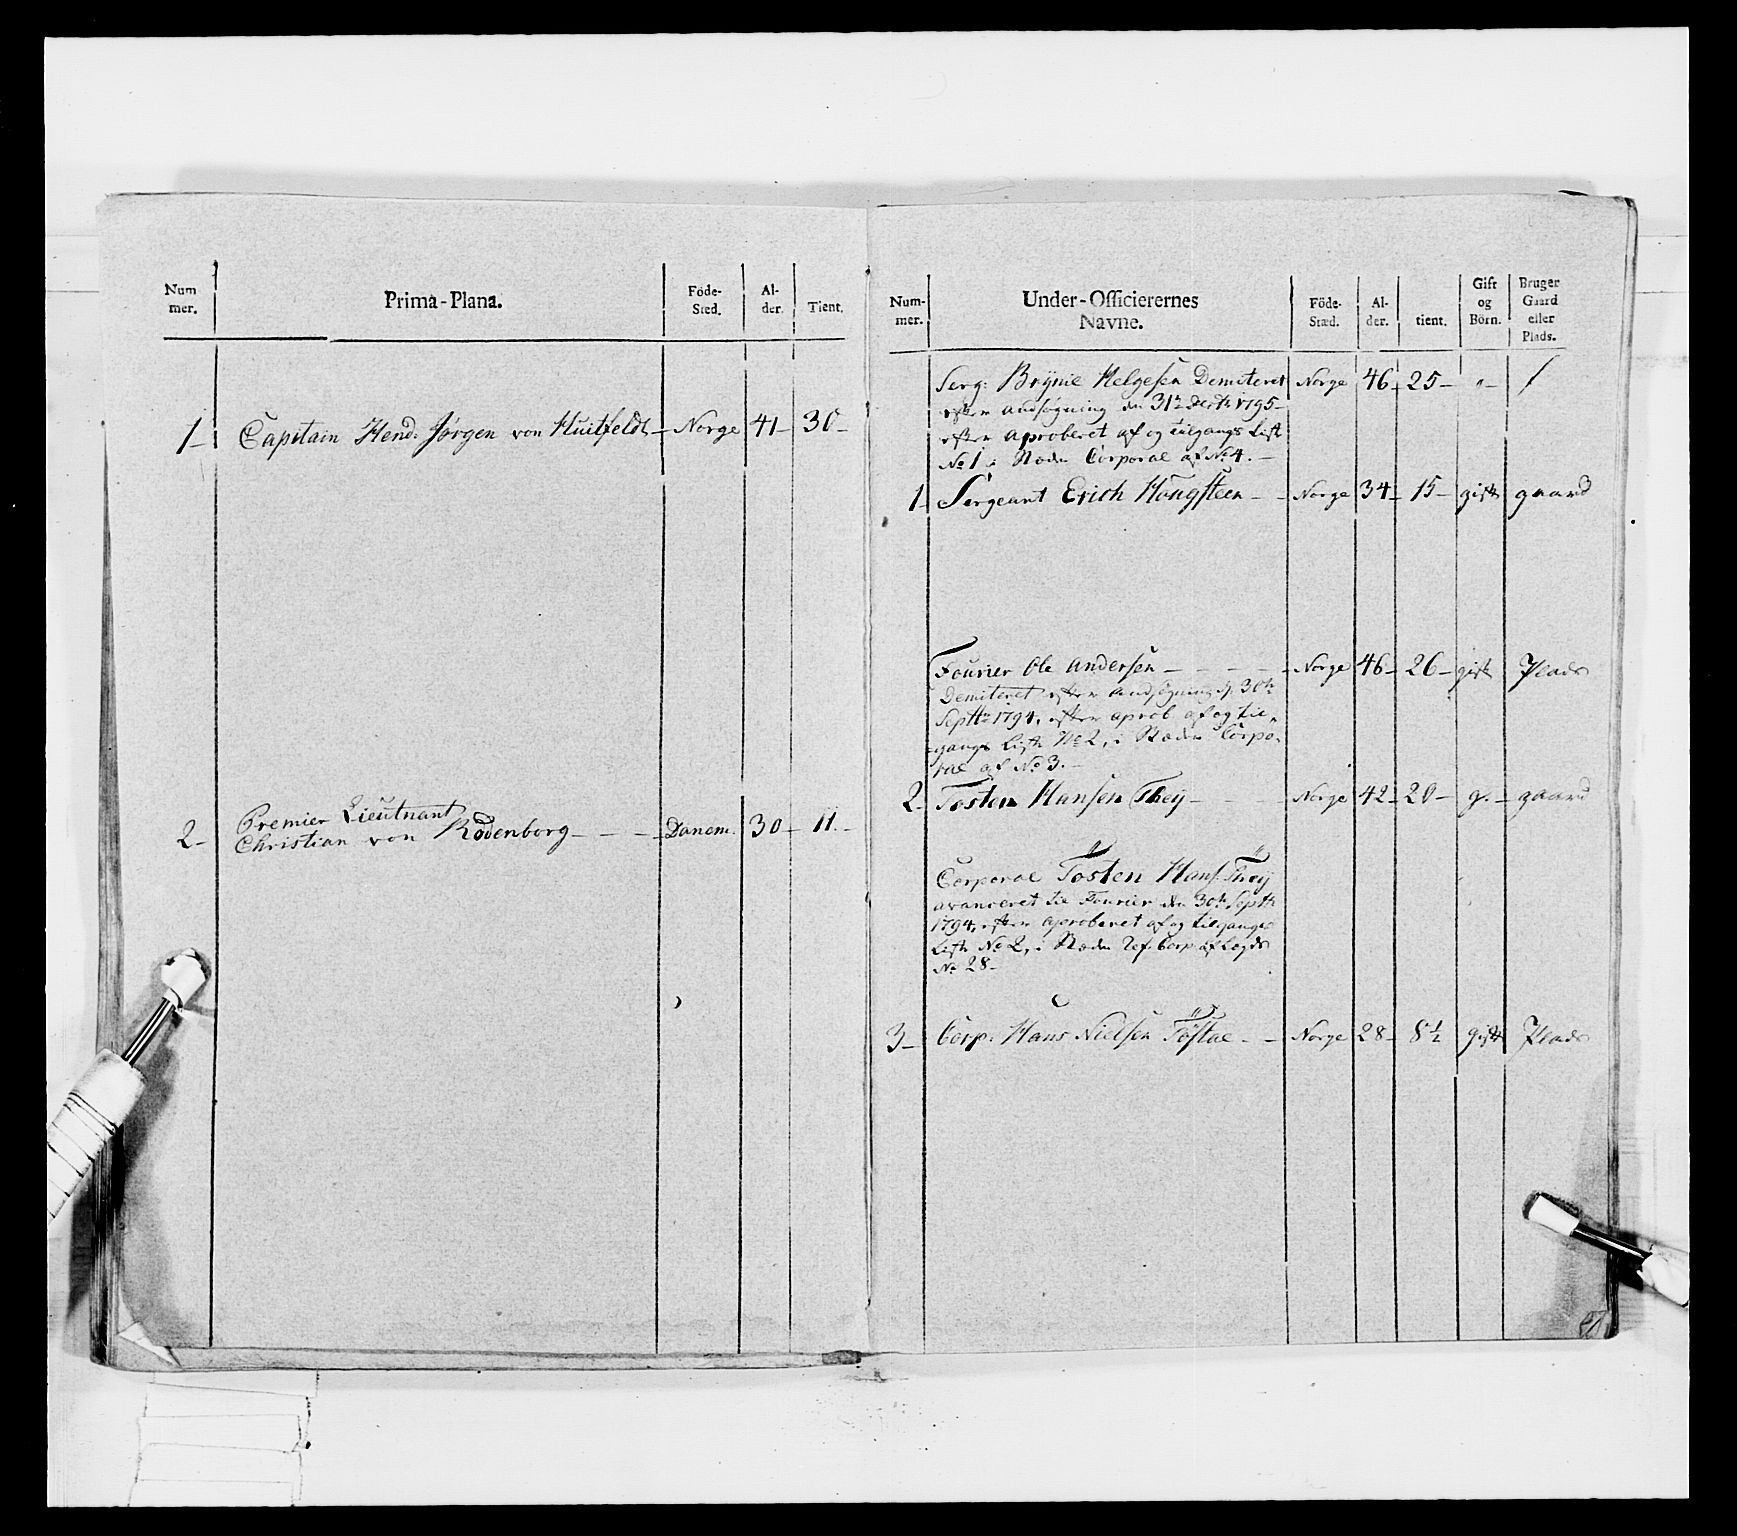 Num
mer.
Prima-Plana.
Föde-
Sted.
Al-
der.
Tient.
1- Capitain Hend: Jørgen von Huitfeldt- Norge 41- 30-
Premier Lieutnant
2- Christian von Rodenborg - - - Danem. 30- 11.-
Num-
mer.
Under-Officierernes
Navne.
Föde-
Stæd.
Al-
der.
tient.
Gift
og
Börn.
Bruger
Gaard
eller
Plads.
Serg: Brynie Helgesen Demiteret Norge 46- 25- "- /
efter ansøgning den 31te Decbr 1795-
efter aproberet af og tilgangs List
No 1 i Stæden Corporal af No 4.-
1 Sergeant Erich Hougsteen - - Norge 34- 15- gift gaard
Fourier Ole Andersen - - - - Norge 46- 26- gift Plads
Demiteret efter Ansøgning d. 30te
Septbr 1794, efter aprob af og til-
gangs List No 2, i Stæden Corpo-
ral af No 3.-
2- Tosten Hansen Theÿ - - - Norge 42- 20- g.- gaard
Corporal Tosten Hans: Theÿ
avanceret til Fourier den 30te Septbr
1794, efter aproberet af og tilgangs
List No 2, i Stæden Ref. Corp. af Lægds
No 28-
3- Corp: Hans Nielsen Tøstae - - Norge 28- 8½ gift Plads